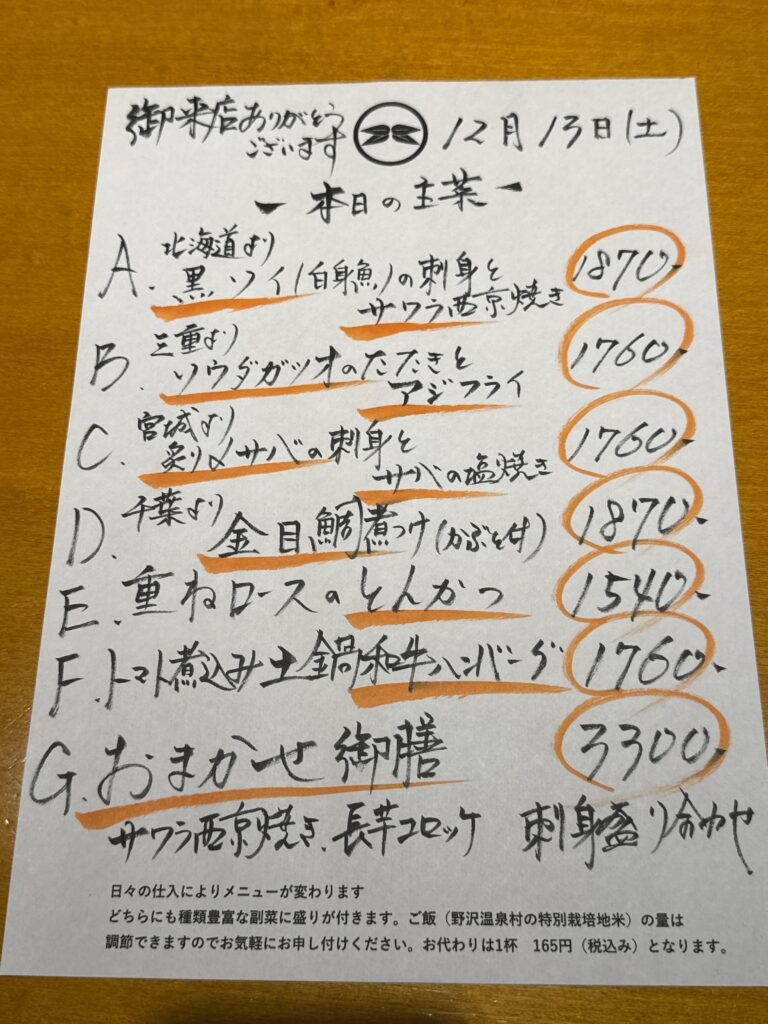 御来店ありがとう
ございます
12月13日(土)
ー本日の主菜ー
A. 北海道より
黒ソイ(白身魚)の刺身と
サワラ西京焼き
1870-
B. 三重より
ソウダガツオのたたきと
アジフライ
1760-
C. 宮城より
炙り〆サバの刺身と
サバの塩焼き
1760-
D. 千葉より
金目鯛煮つけ(かぶと付)
1870-
E. 重ねロースのとんかつ
1540-
F. トマト煮込み土鍋和牛ハンバーグ
1760-
G. おまかせ御膳
3300-
サワラ西京焼き、長芋コロッケ 刺身盛り合わせ
日々の仕入によりメニューが変わります
どちらにも種類豊富な副菜に盛りが付きます。ご飯(野沢温泉村の特別栽培地米)の量は
調節できますのでお気軽にお申し付けください。お代わりは1杯 165円(税込み)となります。